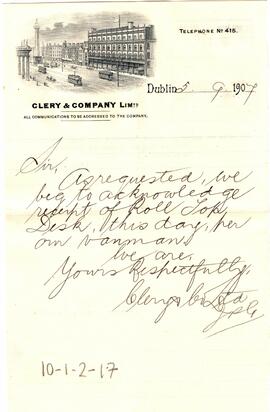 TELEPHONE No 415.
Dublin 5 9 1907
CLERY & COMPANY LIMTD
ALL COMMUNICATIONS TO BE ADDRESSED TO THE COMPANY.
Sir,
As requested, we
beg to acknowledge
receipt of Roll Top
Desk, this day, per
our vanman.
We are,
Yours Respectfully,
Clery & Co Ltd
10-1-2-17